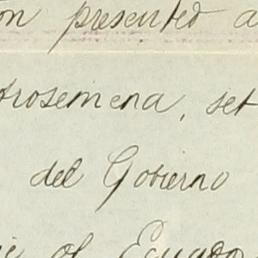 on presented a
rosemena, set
del Gobierno
of Ecuador